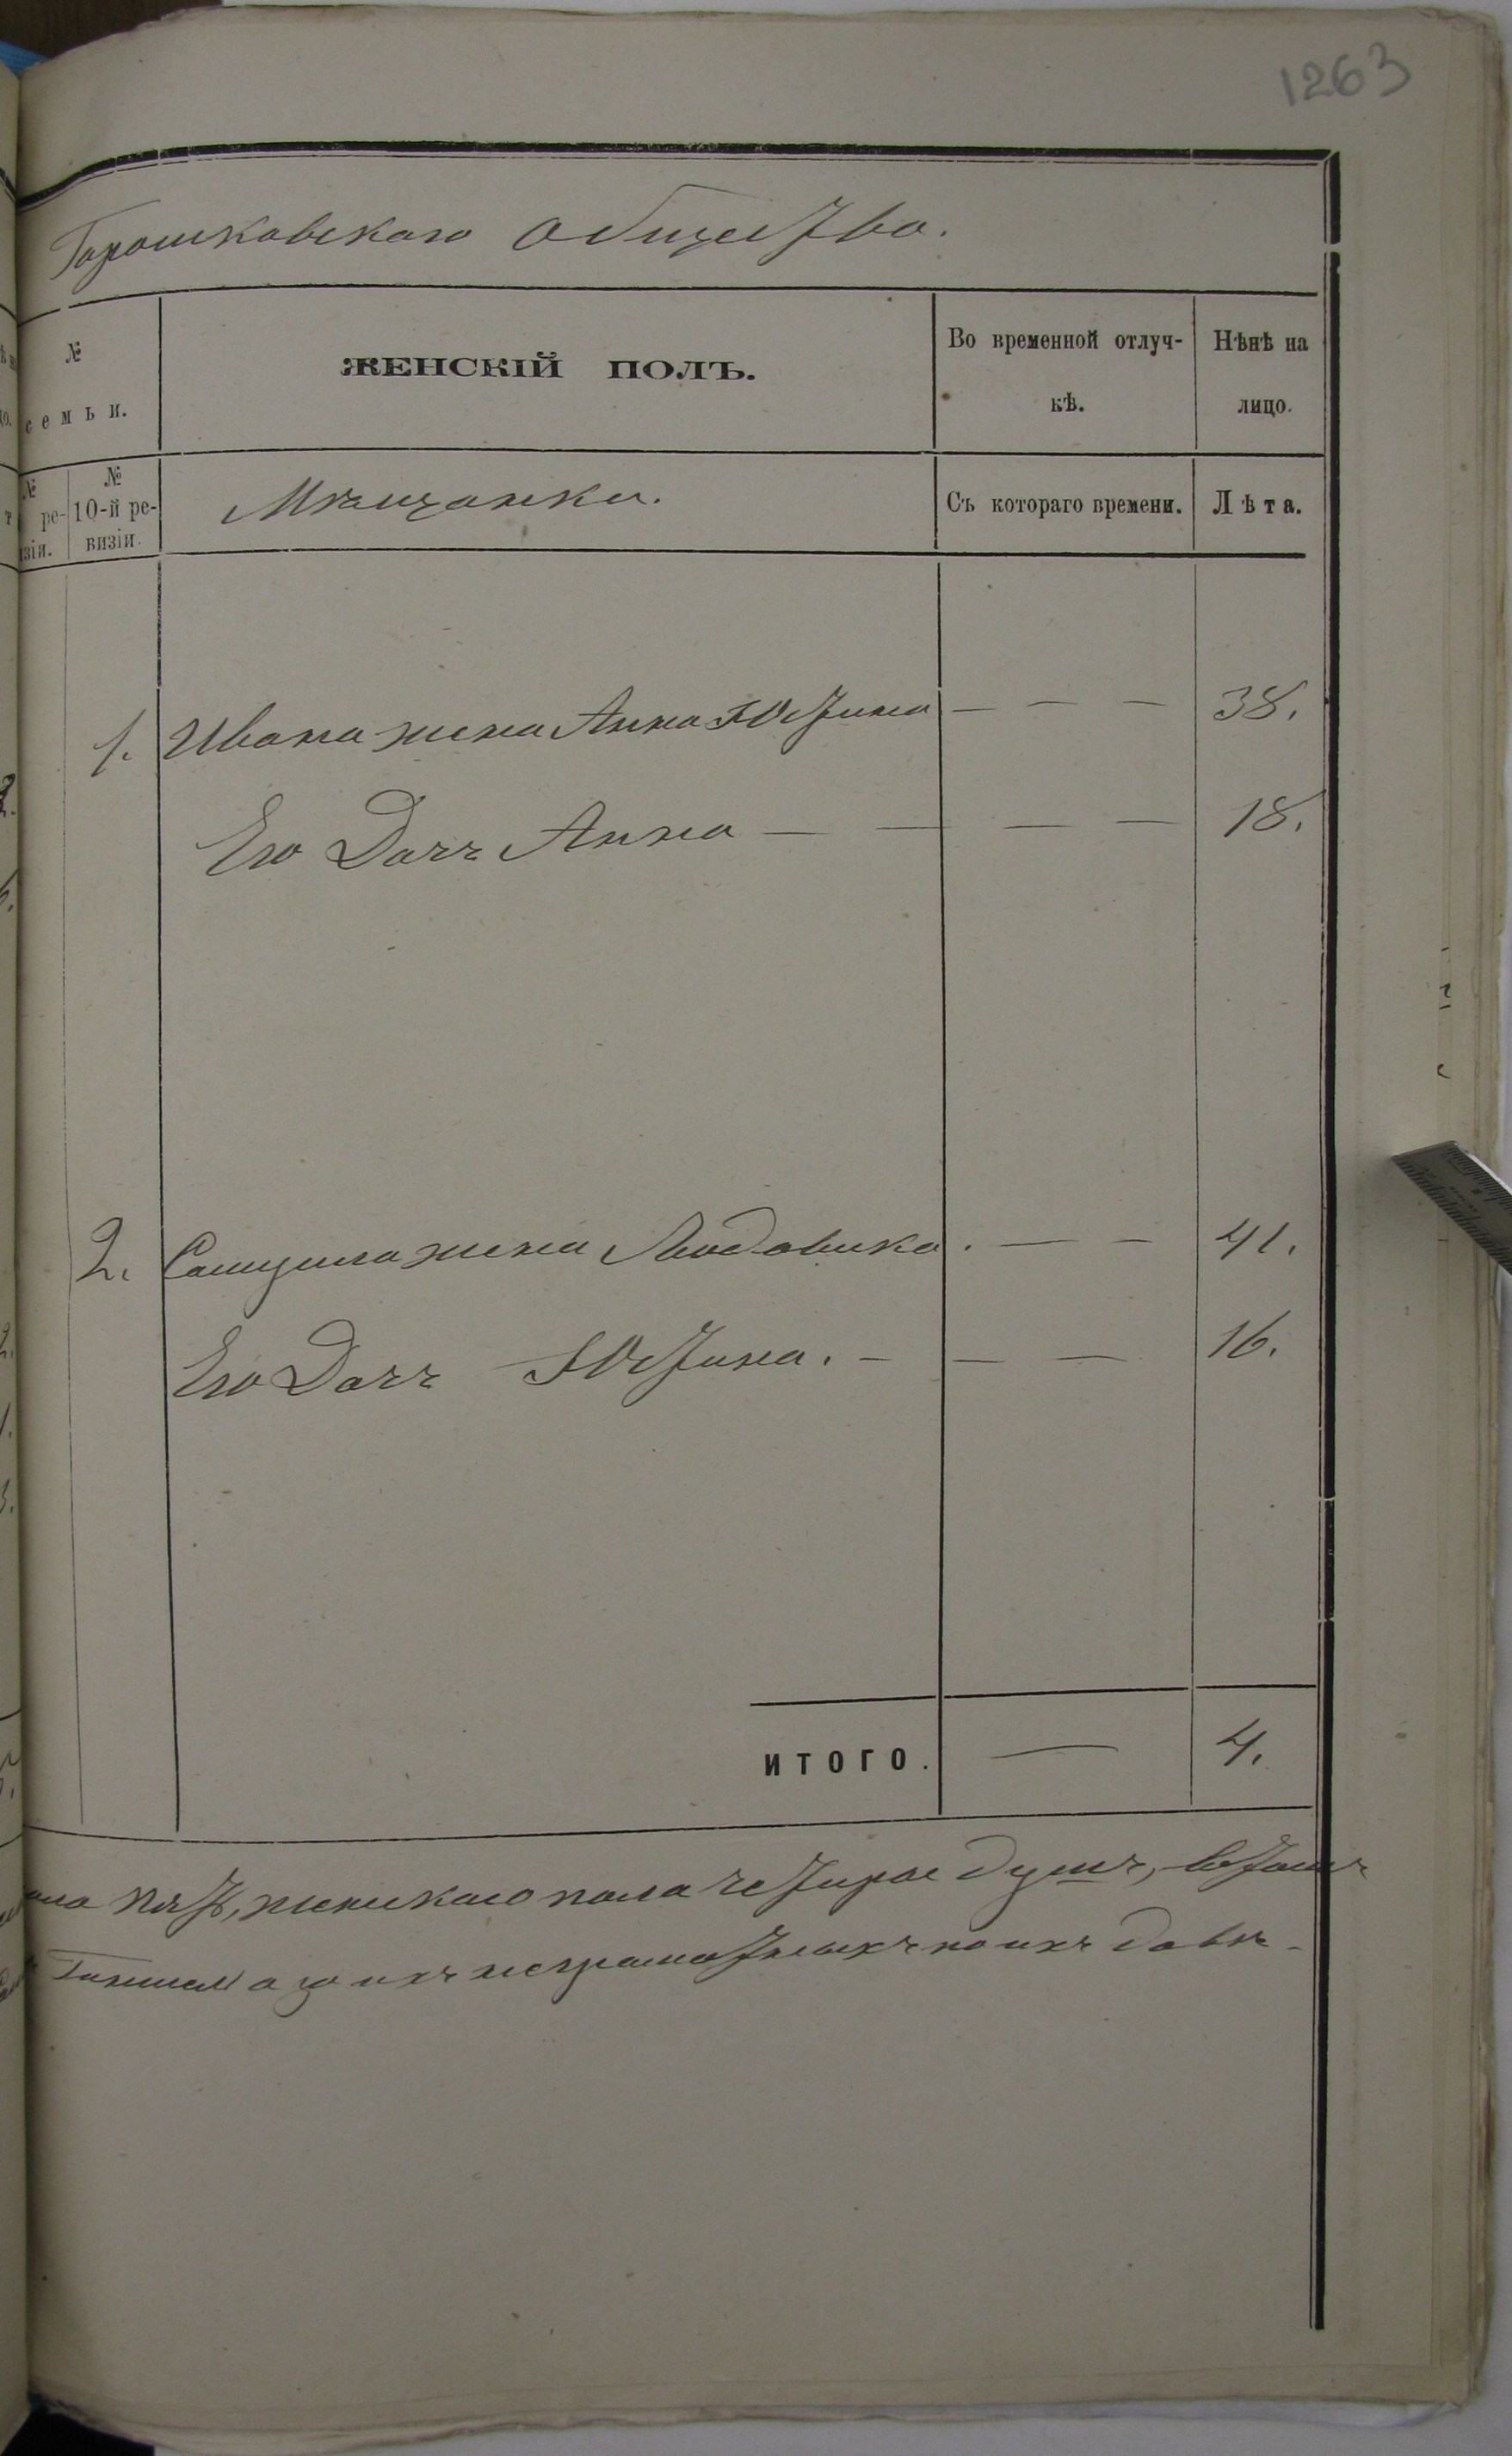 1263
Горошковскаго общества.
№
семьи.
ЖЕНСКІЙ ПОЛЪ.
Во временной отлуч-
кѣ.
Нѣнѣ на
лицо.
№
ре-
зія.
№
10-й ре-
визіи.
Мѣщанки.
Съ котораго времени.
Лѣта.
1. Ивана жена Анна Юстина — — — 38.
Его Дочь Анна — — — — 18.
2. Самуила жена Людовика. — — 41.
Его Дочь Юстина. — — — 16.
ИТОГО. — 4.
пять, женскаго пола четыре душъ, въ томъ
а за ихъ неграмотныхъ по ихъ довѣ-